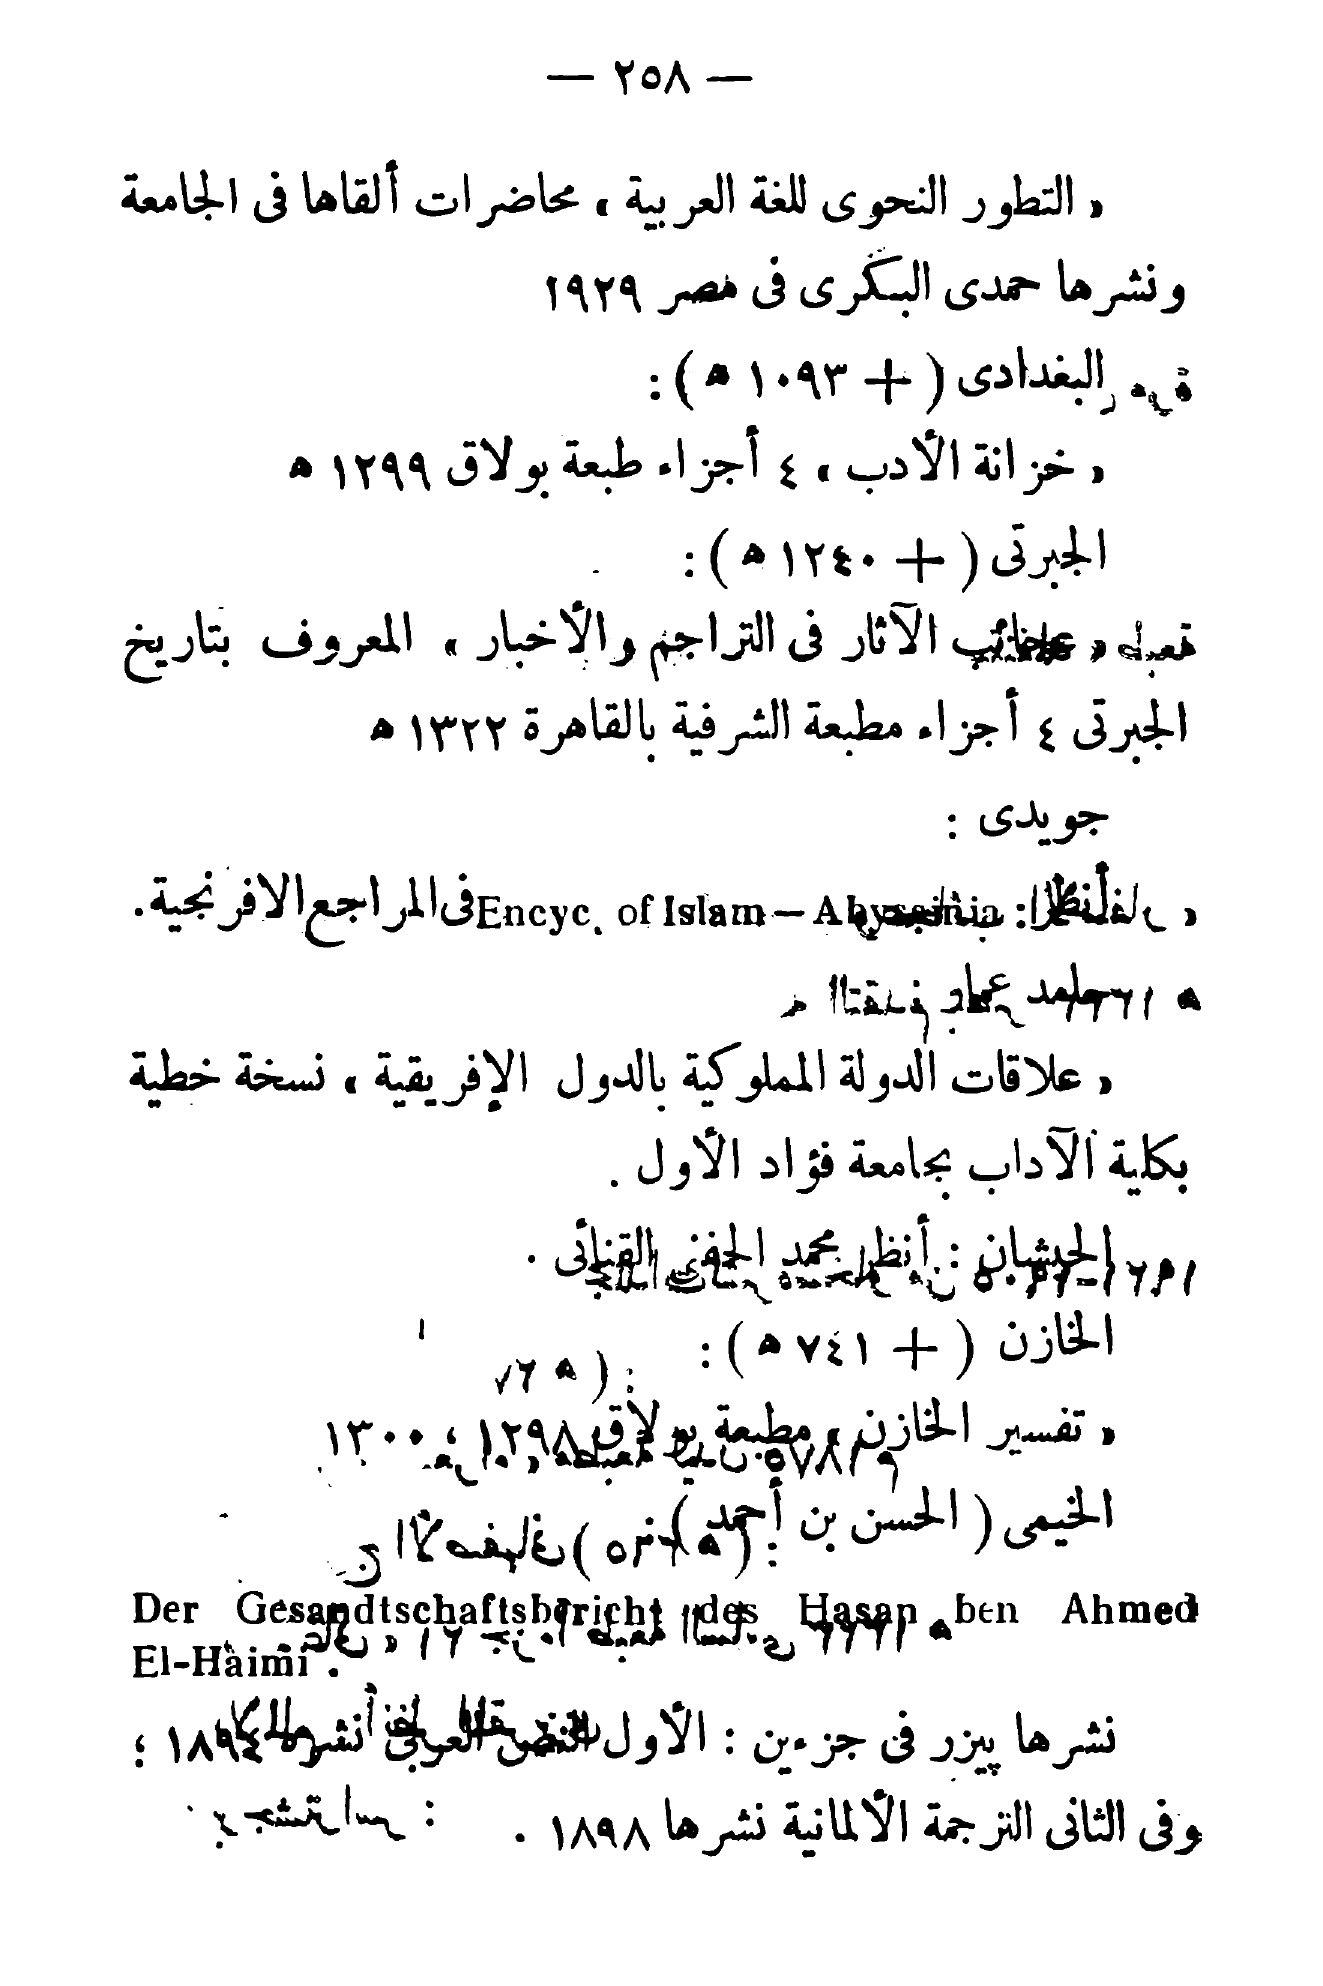 — ٢٥٨ —
« التطور النحوى للغة العربية » محاضرات ألقاها فى الجامعة
ونشرها حمدى البكرى فى مصر ١٩٢٩
البغدادى ( + ١٠٩٣ ه ) :
« خزانة الأدب » ٤ أجزاء طبعة بولاق ١٢٩٩ ه
الجبرتى ( + ١٢٤٠ ه ) :
« عجائب الآثار فى التراجم والأخبار » المعروف بتاريخ
الجبرتى ٤ أجزاء مطبعة الشرفية بالقاهرة ١٣٢٢ ه
جويدى :
أنظر : Encyc. of Islam — Abyssinia فى المراجع الافرنجية .
حامد عمار
« علاقات الدولة المملوكية بالدول الإفريقية » نسخة خطية
بكلية الآداب بجامعة فؤاد الأول .
الحبشان : أنظر محمد الحفنى القنائى .
الخازن ( + ٧٤١ ه ) :
« تفسير الخازن » مطبعة بولاق ١٢٩٨ ، ١٣٠٠
الخيمى ( الحسن بن أحمد )
Der Gesandtschaftsbericht des Hasan ben Ahmed
El-Haimi .
نشرها پيزر فى جزءين : الأول النص العربى أنشره ١٨٩٤ ؛
وفى الثانى الترجمة الألمانية نشرها ١٨٩٨ .